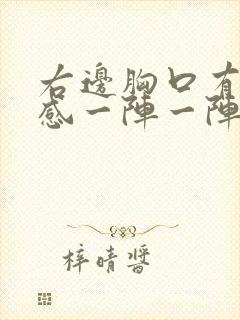 右邊胸口有
感一陣一陣
梓晴醬